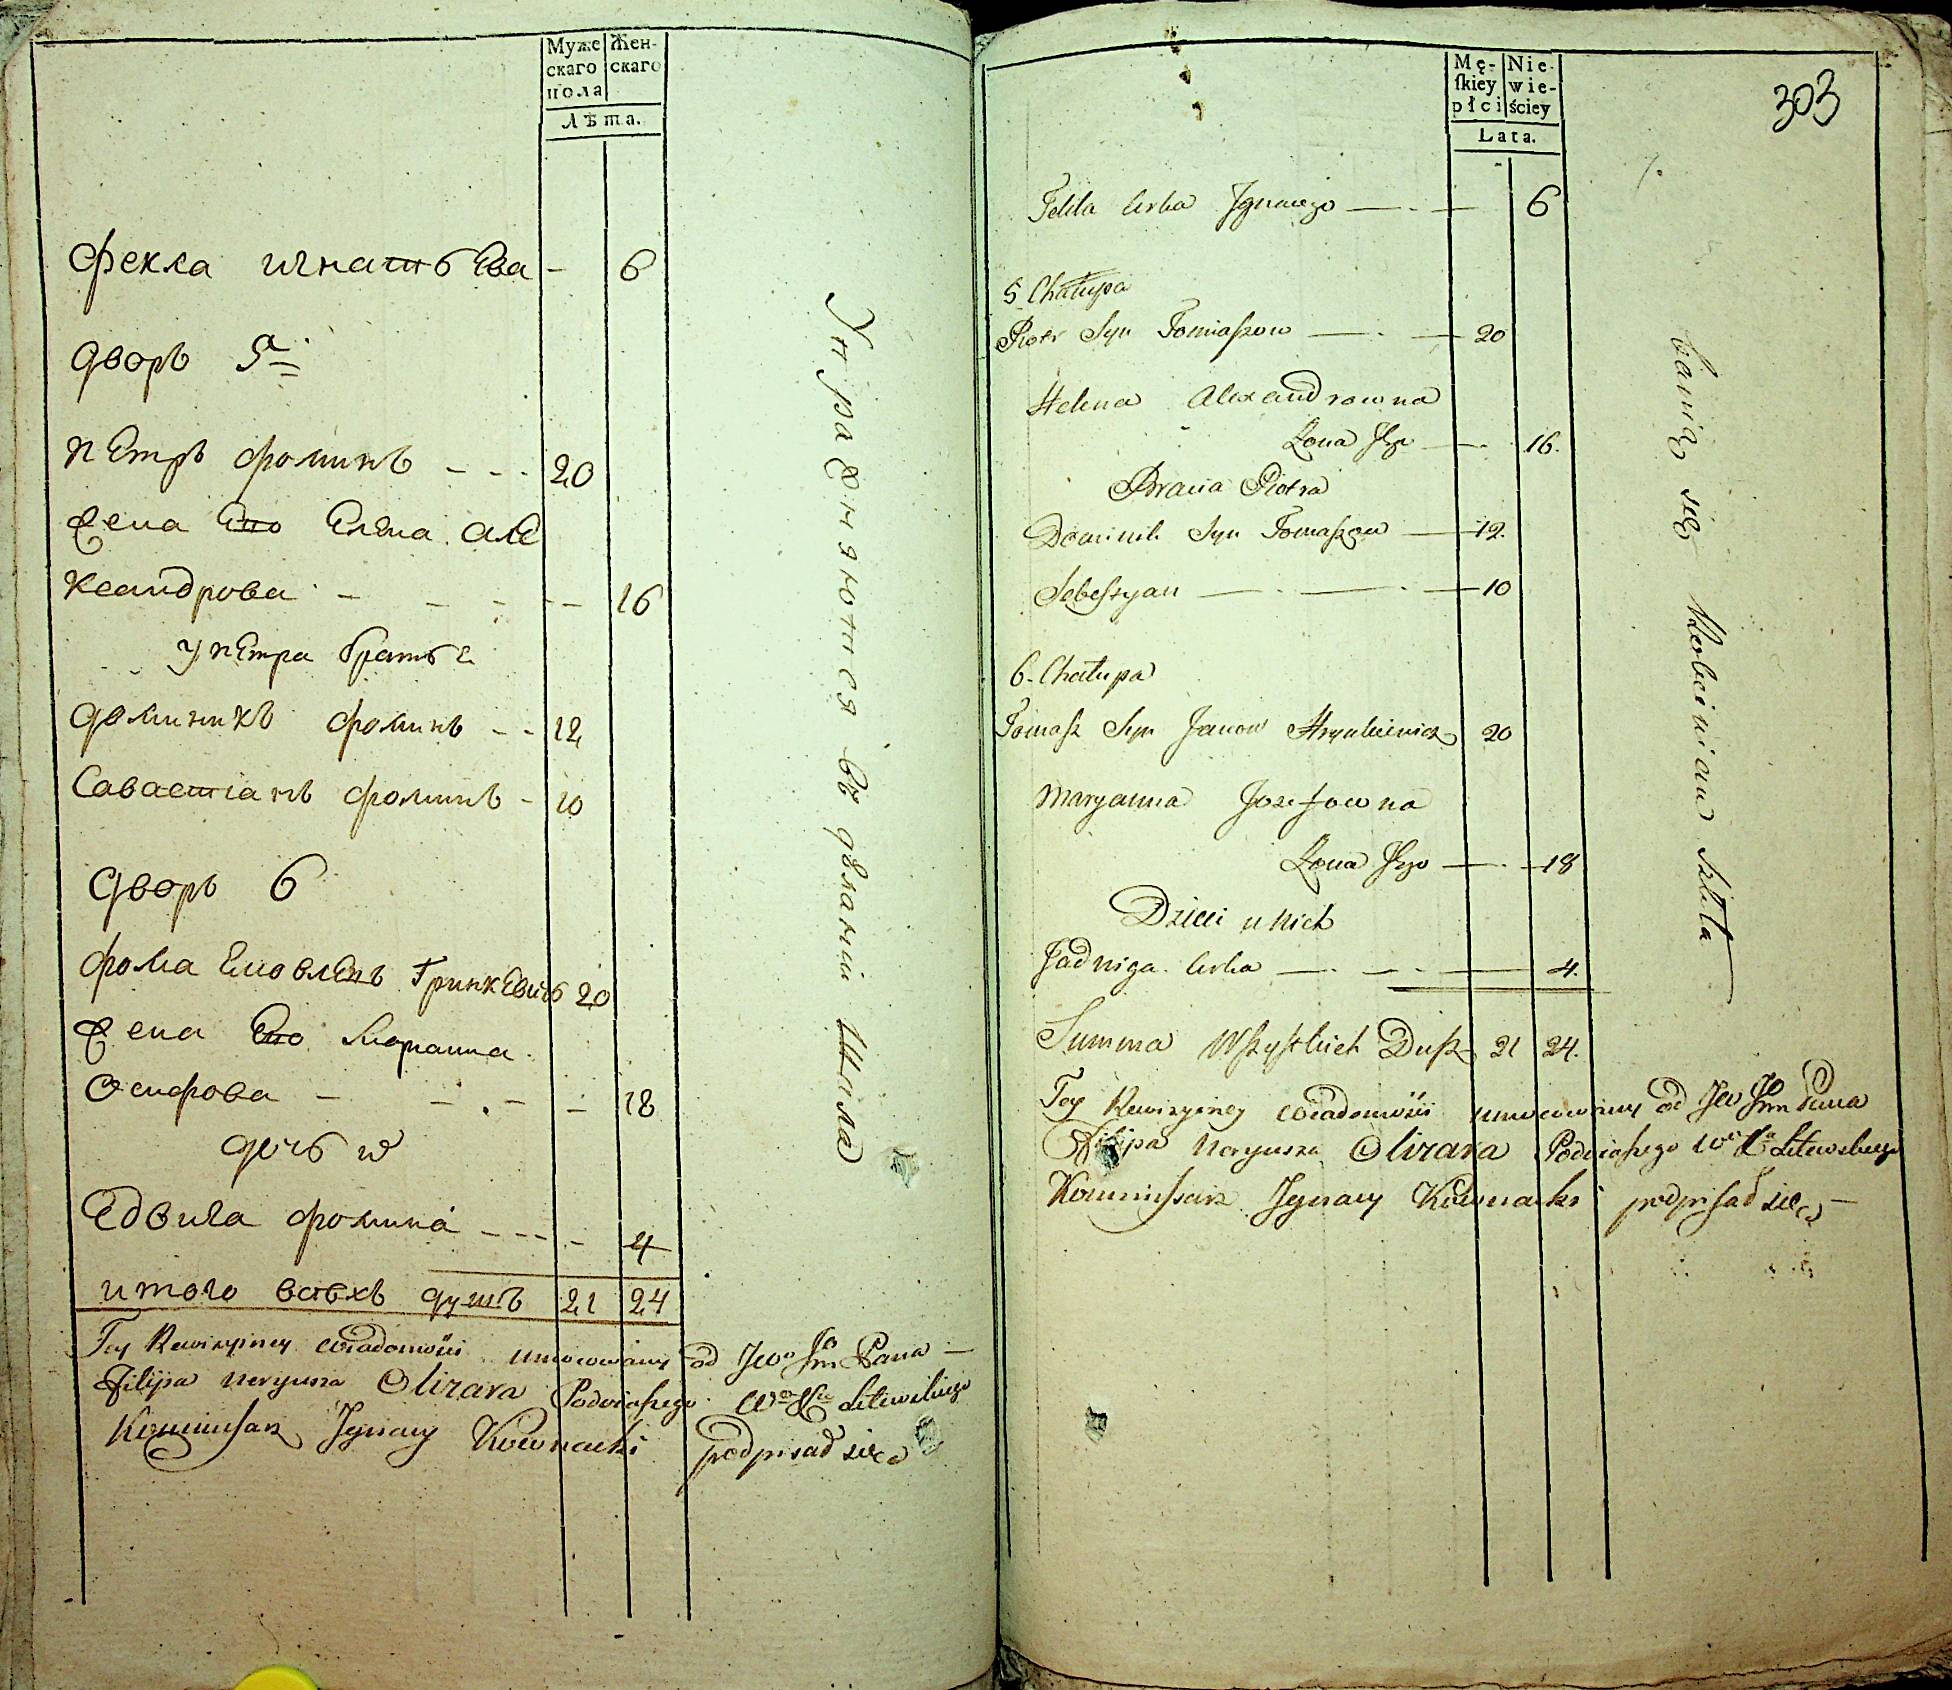 Муже Жен-
скаго скаго
пола
Лѣта.
Фекла игнатьева - 6
дворъ 5й
петръ фоминъ - - - 20
Жена его Елена алe
ксандрова - - - - - 16
у петра братье
доминикъ фоминъ - - 12
Савастіанъ фоминъ - 10
дворъ 6
фома Яковлевъ Гринкевичь 20
Жена его Марианна
Осифова - - - - 18
дочь
Едвига фомина - - - - 4
итого всѣхъ душъ 21 24
Tey Rewizyiney wiadomości umocowany od Jwo Jm Pana
Filipa Neryusza Olizara Podczaszego Wo Xa Litewskiego
Kommissarz Ignacy Kownacki podpisał się
Упражняются въ дѣлании Шкла
Mę- Nie-
skiey wie-
płci ściey
Lata.
303
Tekla Corka Ignacego — . — 6
5 Chałupa
Piotr Syn Tomaszow — . — 20
Helena Alexandrowna
Żona Jego — 16.
Bracia Piotra
Dominik Syn Tomaszow — 12.
Sebestyan — . — . — 10
6. Chałupa
Tomasz Syn Janow Hrynkiewicz 20
Maryanna Jozefowna
Żona Jego — . — 18
Dzieci u nich
Jadwiga Corka — . — . — 4.
Summa Wszystkich Dusz 21 24.
Tey Rewizyiney wiadomości umocowany od Jw Jm Pana
Filipa Neryusza Olizara Podczaszego Wo Xa Litewskiego
Kommissarz Ignacy Kownacki podpisał się —
bawią się Robieniem szkła